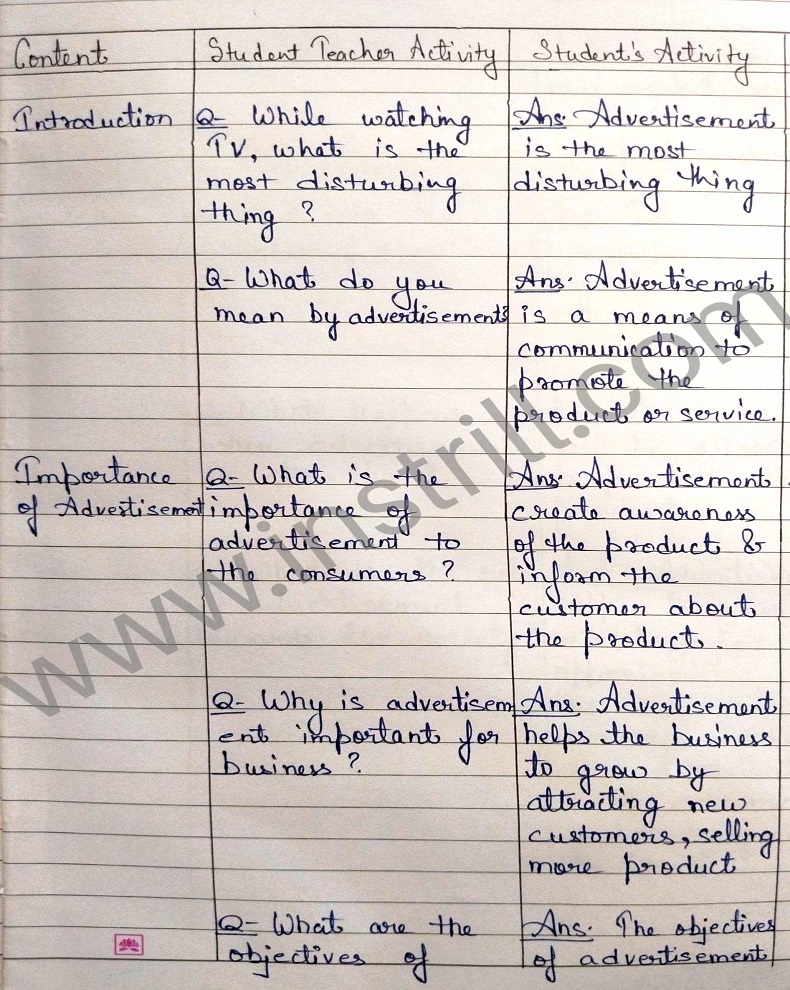 Content Student Teacher Activity Student's Activity
Introduction Q- While watching Ans. Advertisement
TV, what is the is the most
most disturbing disturbing thing
thing ?
Q- What do you Ans. Advertisement
mean by advertisement? is a means of
communication to
promote the
product or service.
Importance Q- What is the Ans. Advertisement
of Advertisement importance of create awareness
advertisement to of the product &
the consumers ? inform the
customer about
the product.
Q- Why is advertisem Ans. Advertisement
ent important for helps the business
business ? to grow by
attracting new
customers, selling
more product
Q- What are the Ans. The objectives
objectives of of advertisement
www.instrill.com